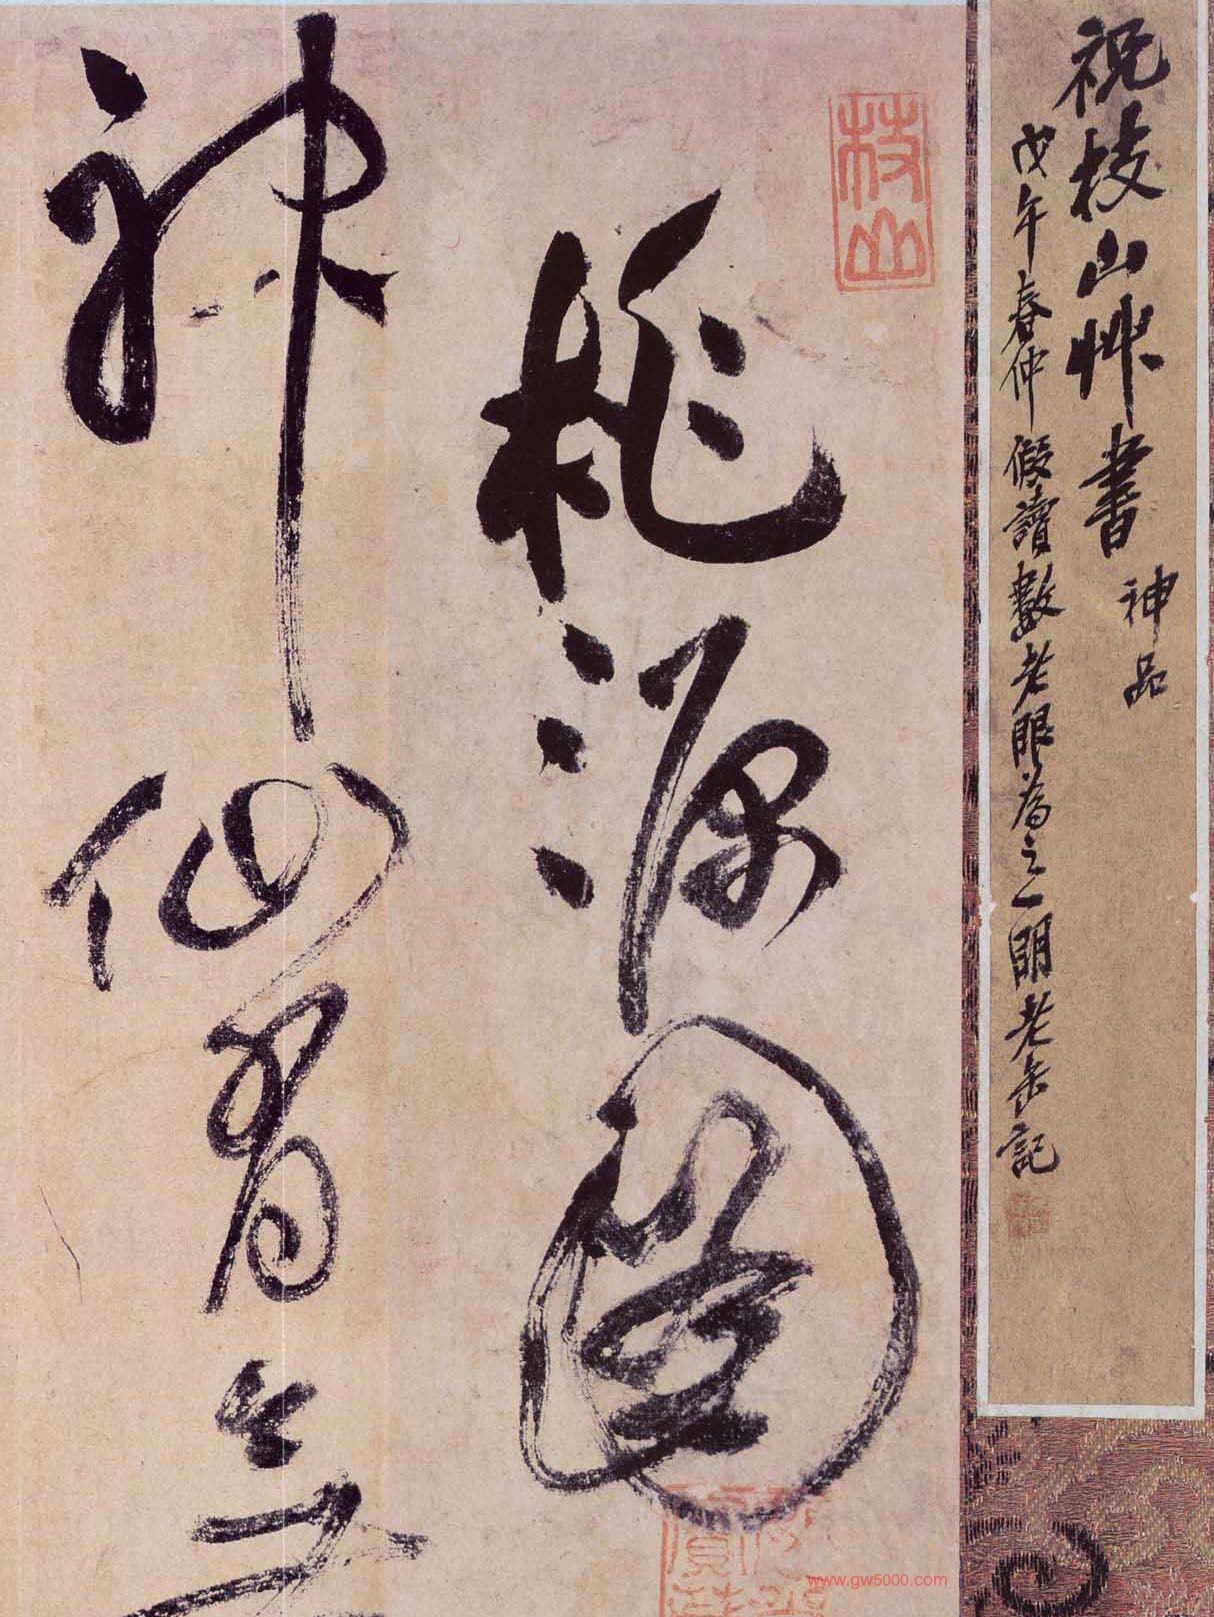 祝枝山艸書
神品
戊午春仲假讀數老眼為之一明老缶記
枝山
桃源圖
神仙有無
www.gw5000.com